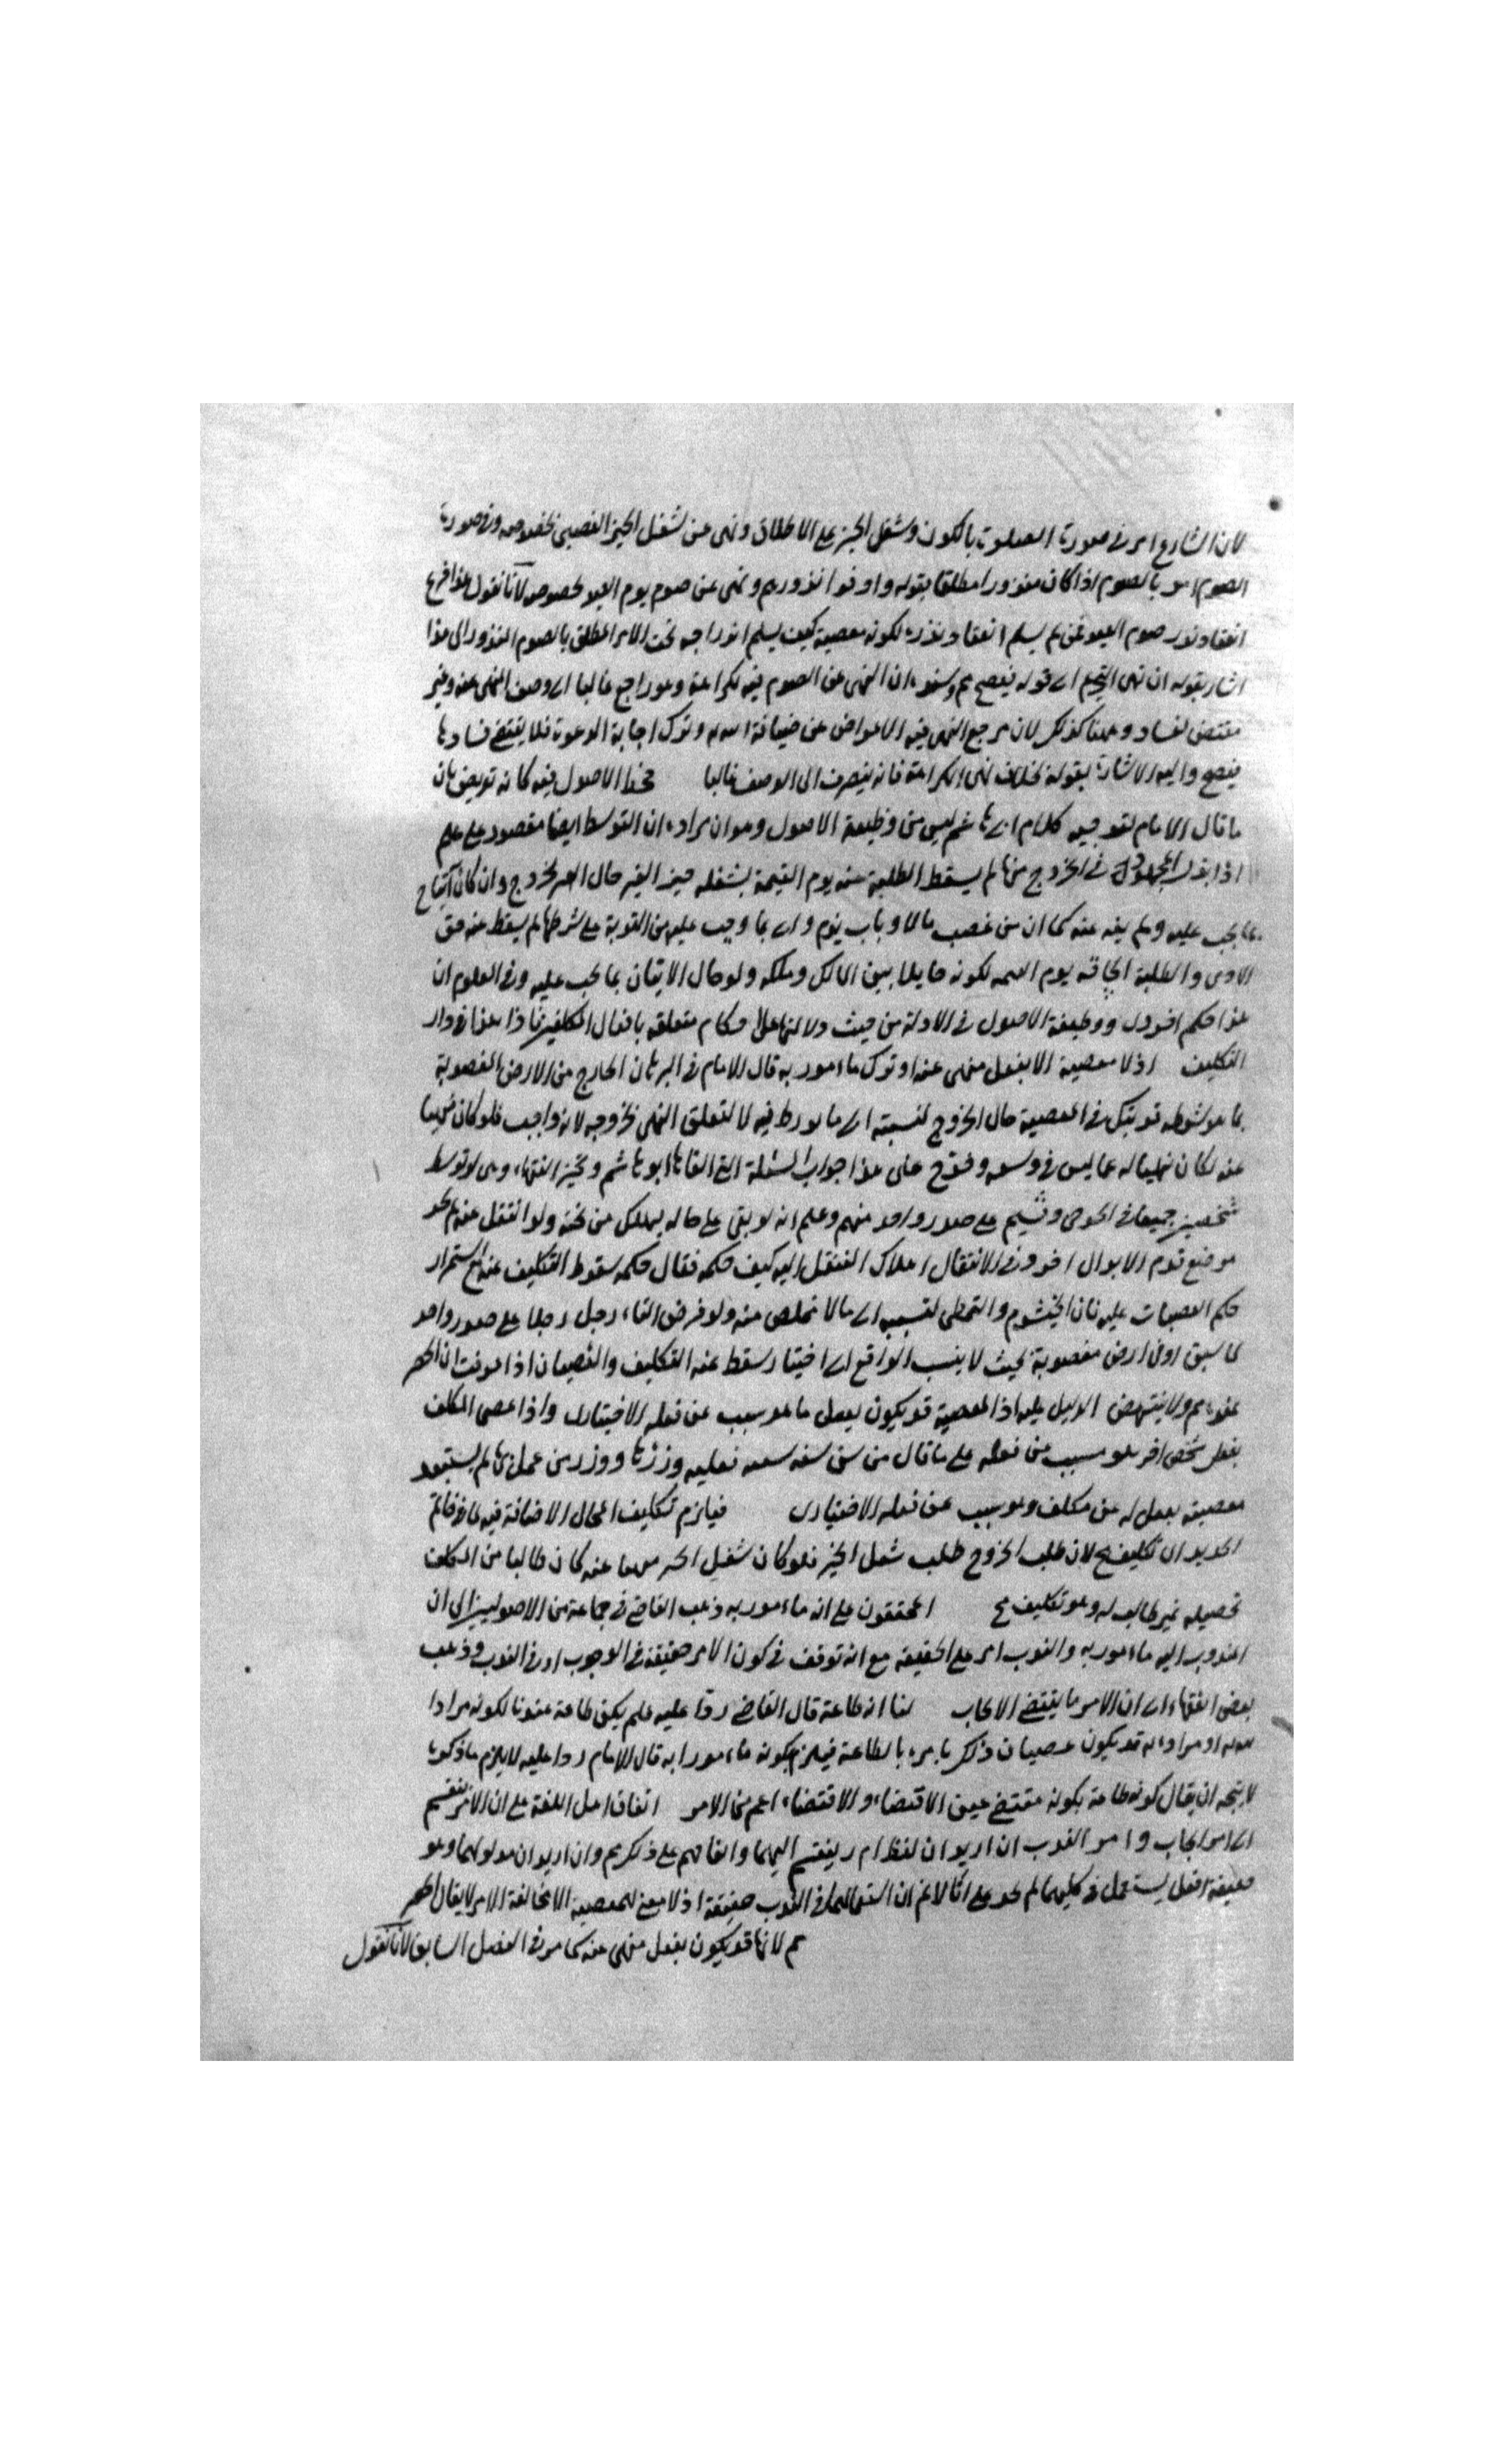 لان الشارع امر في صورة الصلوة بالكون وشغل الحيز على الاطلاق ونهى عن شغل الحيز الغصبى بخصوصه وفي صورة
الصوم امر بالصوم اذا كان منذورا مطلقا بقوله واوفوا نذورهم ونهى عن صوم يوم العيد بخصوصه لانا نقول هذا فرع
انعقاد نذر صوم العيد فمن لم يسلم انعقاد نذره لكونه معصية كيف يسلم اندراجه تحت الامر المطلق بالصوم المنذور الى هذا
اشار بقوله ان نهى التحريم اى قوله فيصح ان النهى عن الصوم فيه لكراهة وهو راجع غالبا الى وصف المنهى عنه وغير
مقتض لفساده وههنا كذلك لان مرجع النهى فيه الاعراض عن ضيافة الله وترك اجابة الدعوة فلا يقتضى فسادها
فيصح واليه الاشارة بقوله بخلاف نهى الكراهة فانه ينصرف الى الوصف غالبا فحظ الاصولى فيه كانه تعريض بان
ما قال الامام لتوجيه كلام ابى هاشم ليس من وظيفة الاصول وهو ان مراده ان التوسط ايضا مقصود على علم
اذا بذل المجهود في الخروج منها لم يسقط الطلبة عنه يوم القيمة بشغله حيز الغير حال الخروج وان كان
بما يجب عليه ولم يغه عنه كما ان من غصب مالا وتاب وندم واتى بما وجب عليه من التوبة على شرطها لم يسقط عنه حق
الآدمى والطلبة يوم القيمة لكونه حايلا بين المالك وملكه ولو حال الاتيان بما يجب عليه وفي العلوم ان
هذا حكم اخروى ووظيفة الاصول في الادلة من حيث دلالتها على احكام متعلقه بافعال المكلفين في دار
التكليف اذ لا معصية الا بفعل منهى عنه او ترك مامور به قال الامام في البرهان الخارج من الارض المغصوبة
بما هو شرطه مرتبك في المعصية حال الخروج لتسببه الى ما تورط فيه لا لتعلق النهى بخروجه لانه واجب فلو كان منهيا
عنه لكان نهيا له عما ليس في وسعه وخرج على هذا جواب المسئلة التى القاها ابو هاشم وتحير الفقهاء وهى لو توسط
شخص جميعا في وجثم على صدر واحد منهم وعلم انه لو بقى على حاله لهلك من تحته ولو انتقل عنه لم يجد
موضع قدم الا بدن اخر وفي الانتقال اهلاك المنتقل اليه كيف حكمه فقال حكمه سقوط التكليف عنه مع استمرار
حكم العصيان عليه فان الجثوم والتخطى لتسببه الى ما لا تخلص منه ولو فرض القاء رجل رجلا على صدر واحد
كما سبق او في ارض مغصوبة بحيث لا ينسب الواقع الى اختيار سقط عنه التكليف والعصيان اذا عرفت ان الحصر
عنده ولا ينتهض الدليل عليه اذ المعصية قد يكون بفعل ما هو سبب عن فعله الاختيارى واذا عصى المكلف
بفعل شخص اخر هو مسبب عن فعله على ما قال من سن سنة سيئة فعليه وزرها ووزر من عمل بها لم يستبعد
معصيته بفعل له عن مكلف وهو سبب عن فعله الاختيارى فيلزم تكليف المحال الاضافة فيه كما في خاتم
الحديد اى تكليف مح لان طلب الخروج طلب شغل الحيز فلو كان شغل الحيز منهيا عنه كان طالبا من المكلف
تحصيله غير طالب له وهو تكليف مح المحققون على انه مامور به ذهب القاضى في جماعة من الاصوليين الى ان
المندوب اليه مامور به والندب امر على الحقيقة مع انه توقف في كون الامر حقيقة في الوجوب او في الندب وذهب
بعض الفقهاء الى ان الامر ما يقتضى الايجاب لنا انه طاعة قال القاضى ردا عليه فلم يكن طاعة عندنا لكونه مرادا
لله او مراده قد يكون عصيان ذلك بامره بالطاعة فيلزم كونه مامورا به قال الامام ردا عليه لا يلزم ما ذكره
لا يتجه ان يقال كونه طاعة بكونه مقتضى عين الاقتضاء والاقتضاء اعم من الامر اتفاق اهل اللغة على ان الامر ينقسم
الى امر ايجاب وامر الندب ان اريد ان لفظ ام ر ينقسم اليهما واتفاقهم على ذلك مم وان اريد ان مدلولهما وهو
صيغة افعل يستعمل في كليهما لم يجد على انا لا نم ان استعمالها في الندب حقيقة اذ لا معنى للمعصية الا مخالفة الامر لا يقال الحصر
مم لانها قد يكون بفعل منهى عنه كما مر في الفصل السابق لانا نقول